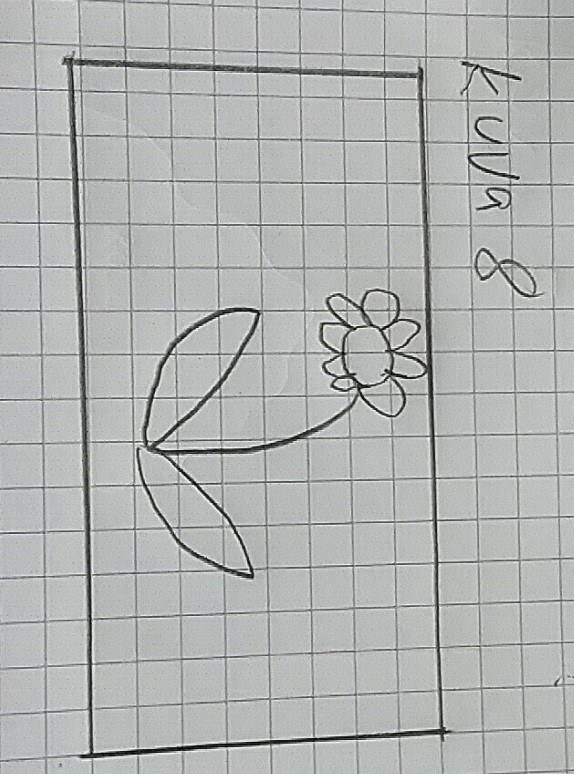 Kuva 8